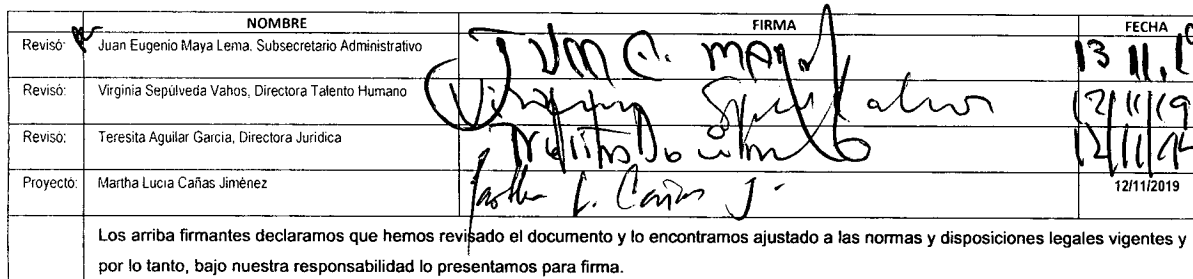 NOMBRE FIRMA FECHA
Revisó: Juan Eugenio Maya Lema. Subsecretario Administrativo 13 11.
Revisó: Virginia Sepúlveda Vahos, Directora Talento Humano 12/11/19
Revisó: Teresita Aguilar García, Directora Jurídica 12/11/19
Proyectó: Martha Lucía Cañas Jiménez Martha L. Cañas J. 12/11/2019
Los arriba firmantes declaramos que hemos revisado el documento y lo encontramos ajustado a las normas y disposiciones legales vigentes y
por lo tanto, bajo nuestra responsabilidad lo presentamos para firma.